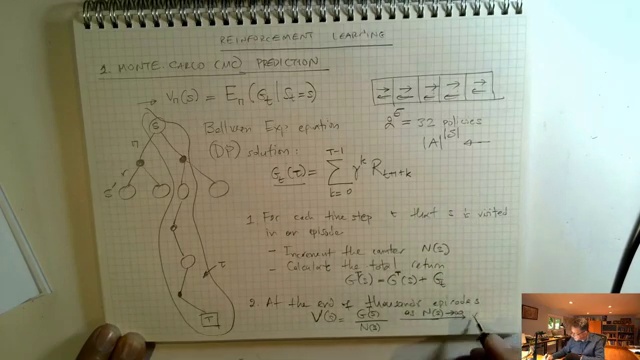 REINFORCEMENT LEARNING
1. MONTE-CARLO (MC) PREDICTION
→ V_π(s) = E_π (G_t | S_t = s)
Bellman Exp. equation
(DP) solution:
G_t(τ) = Σ_{k=0}^{T-1} γ^k R_{t+1+k}
2^5 = 32 policies
|A|^{|S|} ←
S
π
r
s'
τ
T
1. For each time step t that s is visited
in an episode
- Increment the counter N(s)
- Calculate the total return
G^T(s) = G^T(s) + G_t
2. At the end of thousands episodes
V(s) = G(s) / N(s) as N(s) → ∞